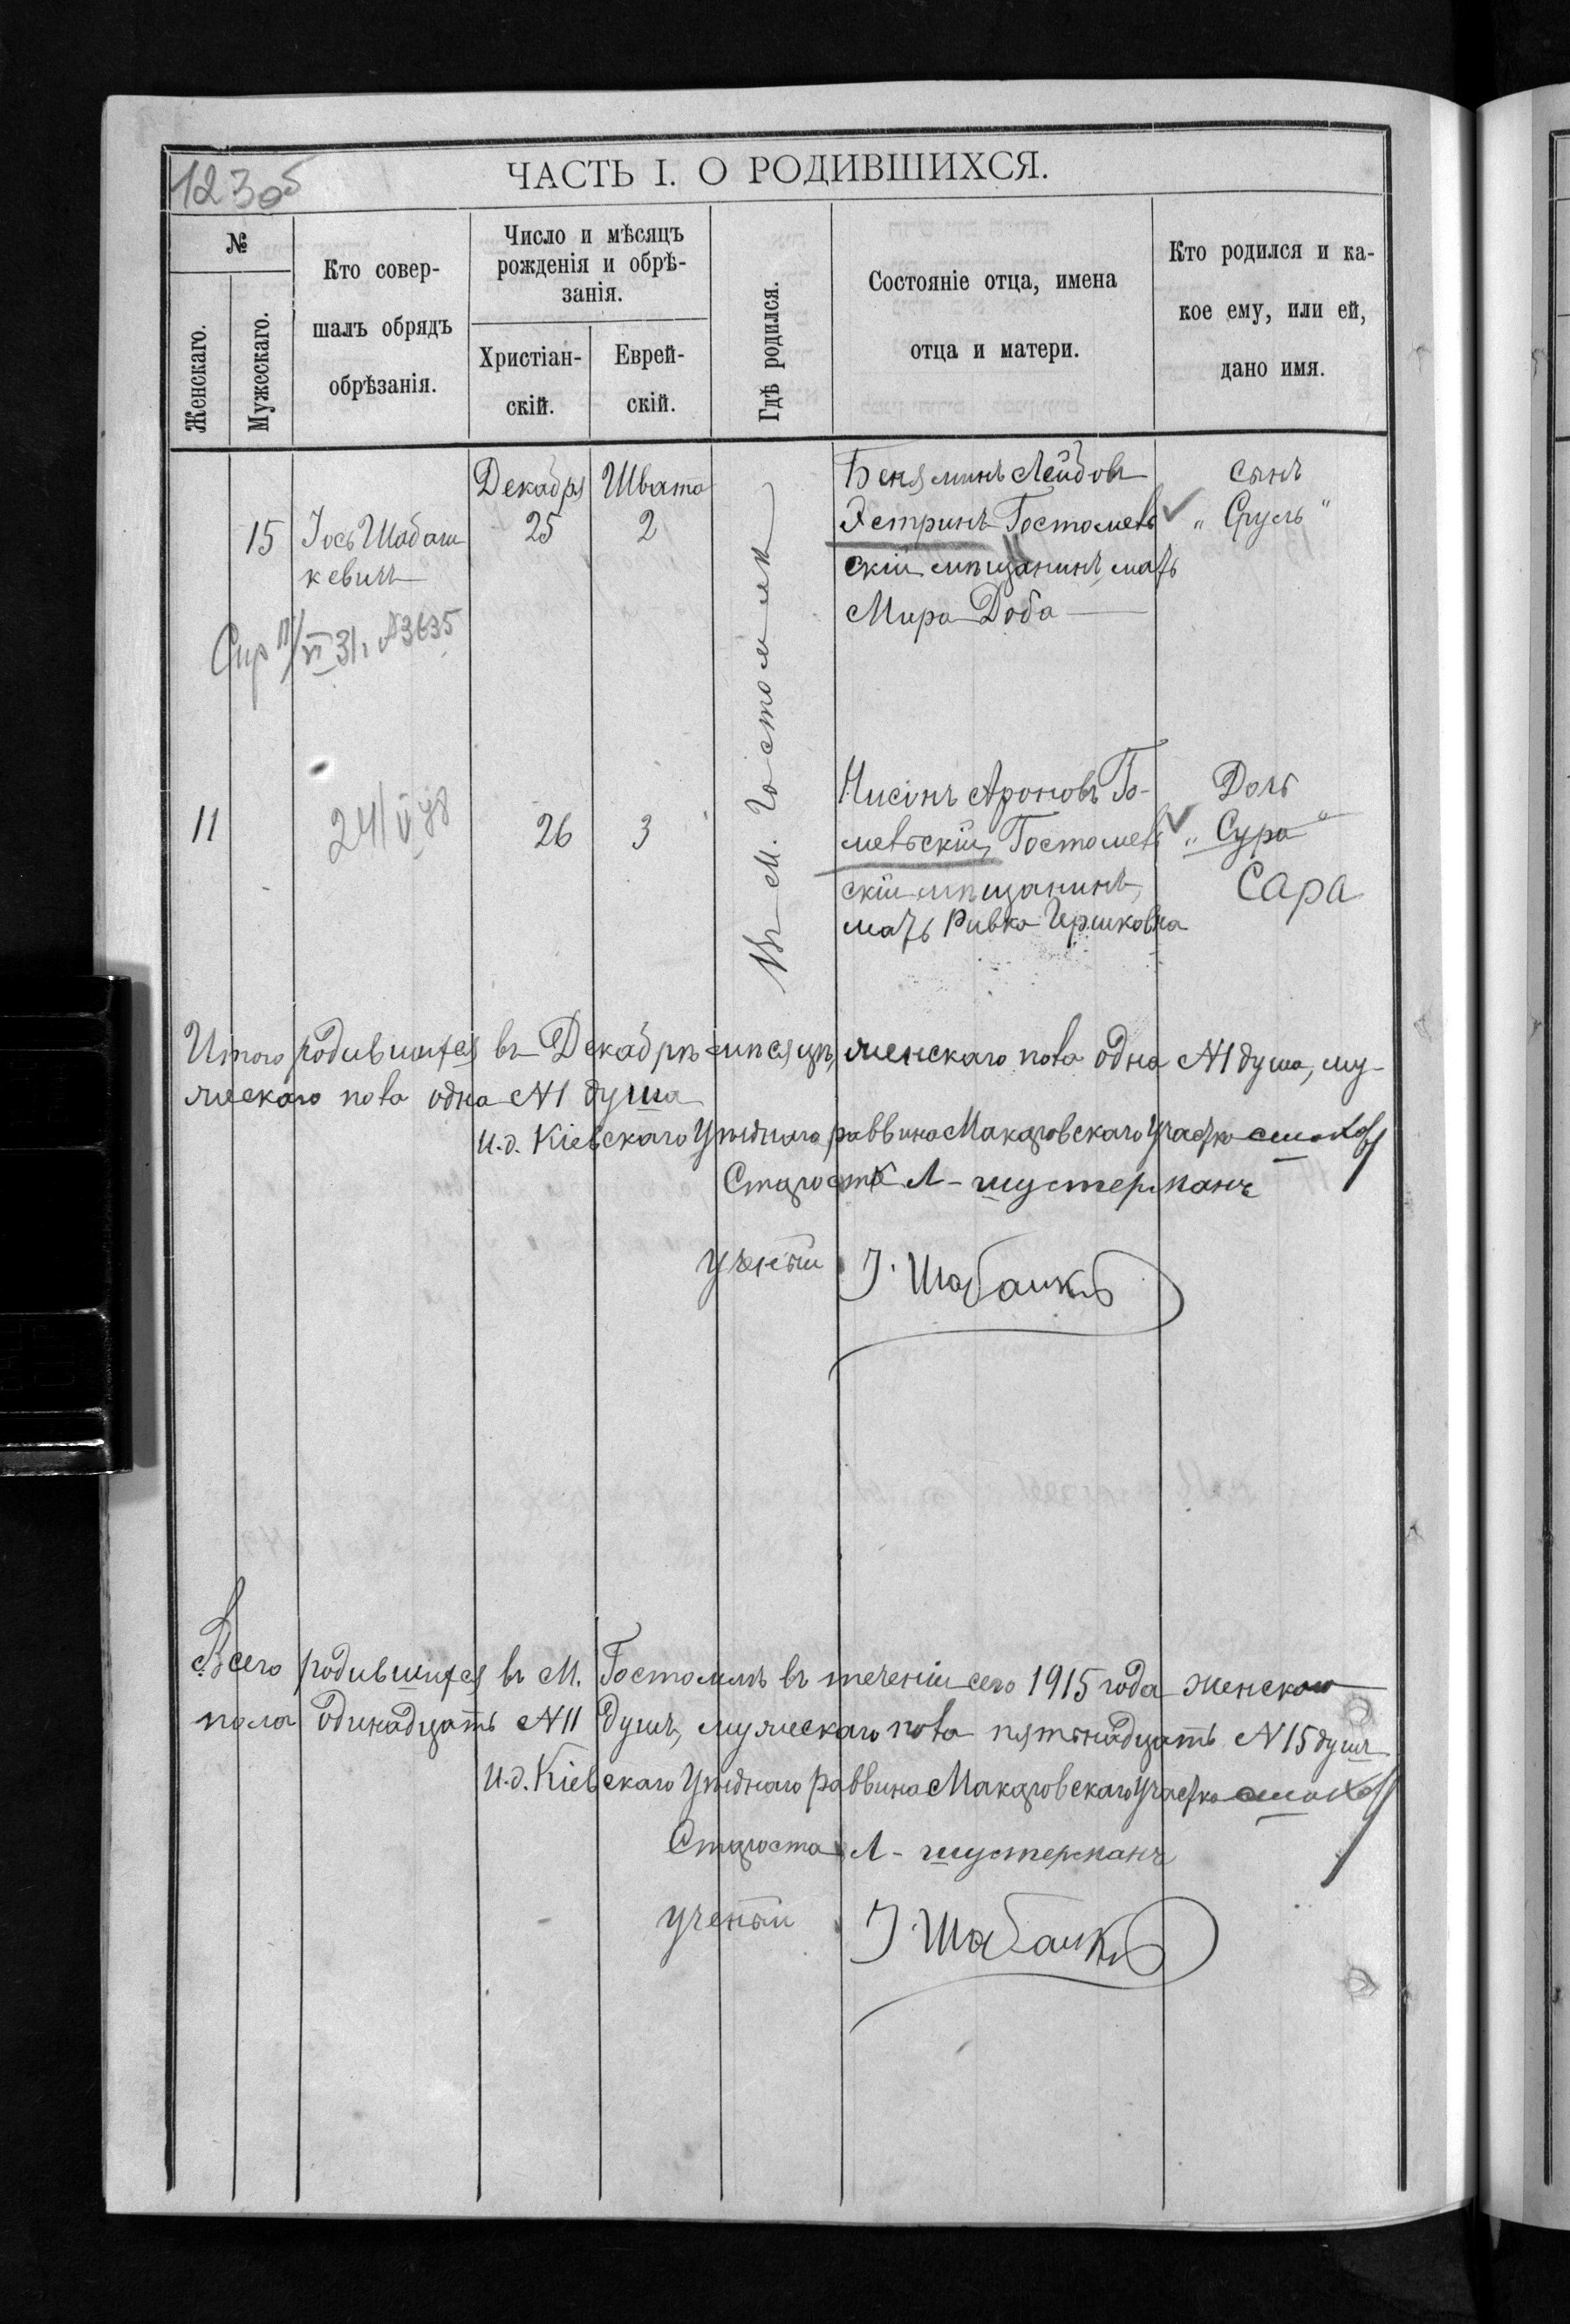 123об
ЧАСТЬ I. О РОДИВШИХСЯ.
№
Женскаго.
Мужескаго.
Кто совер-
шалъ обрядъ
обрѣзанія.
Число и мѣсяцъ
рожденія и обрѣ-
занія.
Христіан-
скій.
Еврей-
скій.
Гдѣ родился.
Состояніе отца, имена
отца и матери.
Кто родился и ка-
кое ему, или ей,
дано имя.
15
Іось Шабаш
кевичъ
Декабря
25
Швата
2
Въ М. Гостомлѣ
Беняминъ Лейбовъ
Эстринъ Гостомель
скій мѣщанинъ, мать
Мира Доба
сынъ
„Сруль“
VI 31 №3635
11
24/V 48
26
3
Нисонъ Ароновъ Го-
мельскій, Гостомель
скій мѣщанинъ,
мать Ривка Иршковна
Дочь
„Сура“
Сара
Итого родившихся въ Декабрѣ мѣсяцѣ, женскаго пола одна №1 душа, му-
жескаго пола одна №1 душа
И.д. Кіевскаго Уѣзднаго раввина Макаровскаго Участка
Староста Л-шустерманъ
Ученый І. Шабашк
Всего родившихся въ М. Гостомлѣ въ теченіи сего 1915 года женскаго
пола одинадцать №11 душъ, мужескаго пола пятьнадцать №15 душъ
И.д. Кіевскаго Уѣзднаго раввина Макаровскаго Участка
Староста Л-шустерманъ
Ученый І. Шабашк